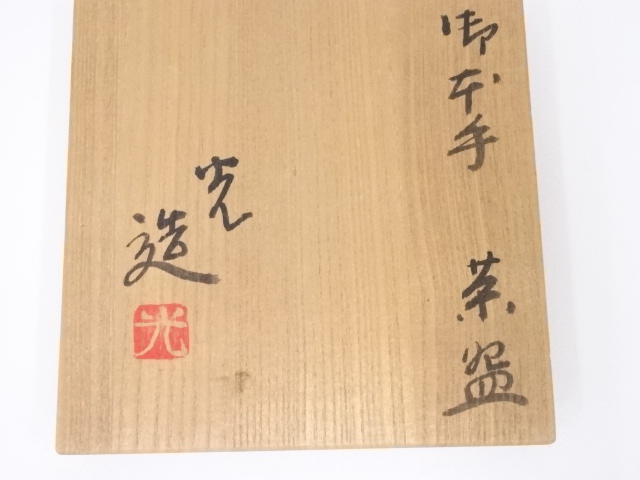 御本手 茶盌
光
造
光